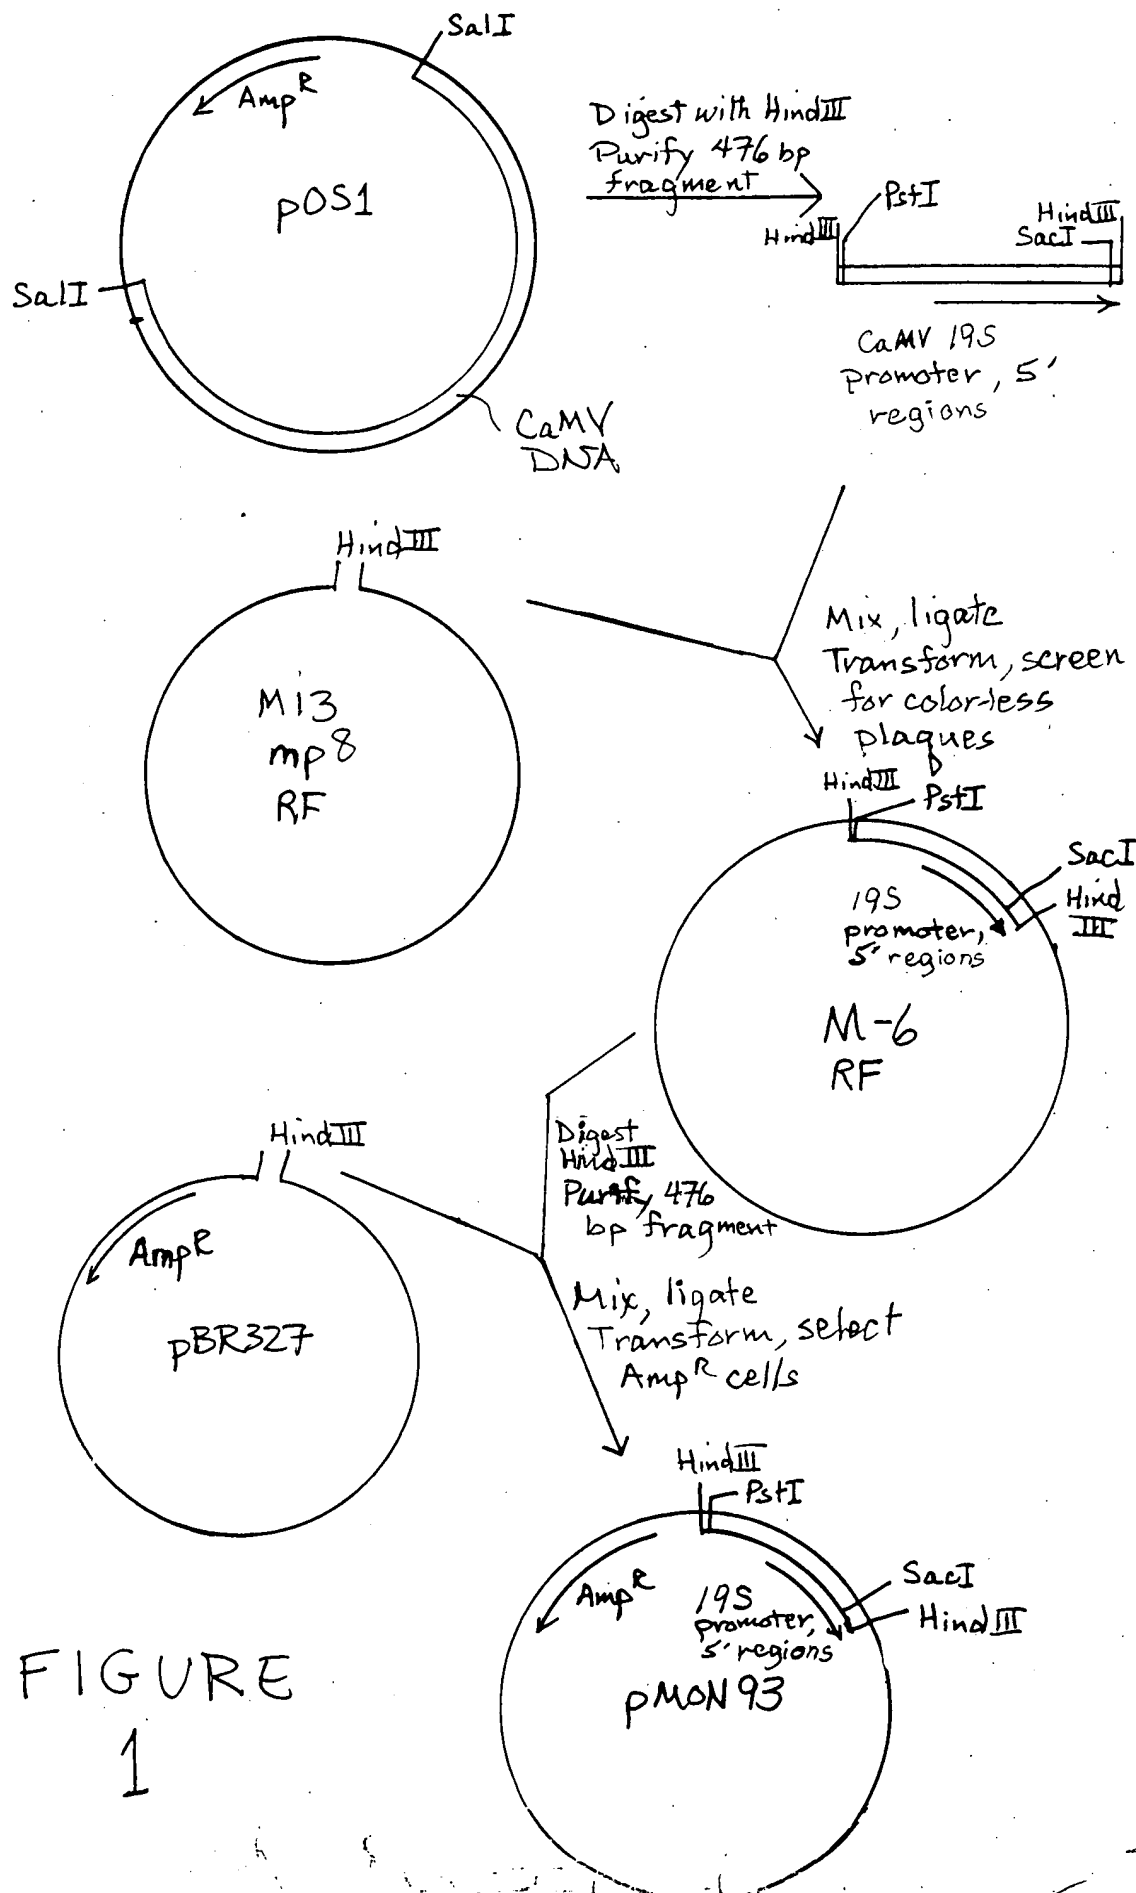 SalI
Amp^R
pOS1
SalI
CaMV
DNA
Digest with HindIII
Purify 476 bp
fragment
HindIII
PstI
HindIII
SacI
CaMV 19S
promoter, 5'
regions
HindIII
M13
mp8
RF
Mix, ligate
Transform, screen
for color-less
plaques
HindIII
PstI
SacI
Hind
III
19S
promoter,
5' regions
M-6
RF
HindIII
Amp^R
pBR327
Digest
HindIII
Purify 476
bp fragment
Mix, ligate
Transform, select
Amp^R cells
HindIII
PstI
SacI
HindIII
Amp^R
19S
promoter,
5' regions
pMON93
FIGURE
1